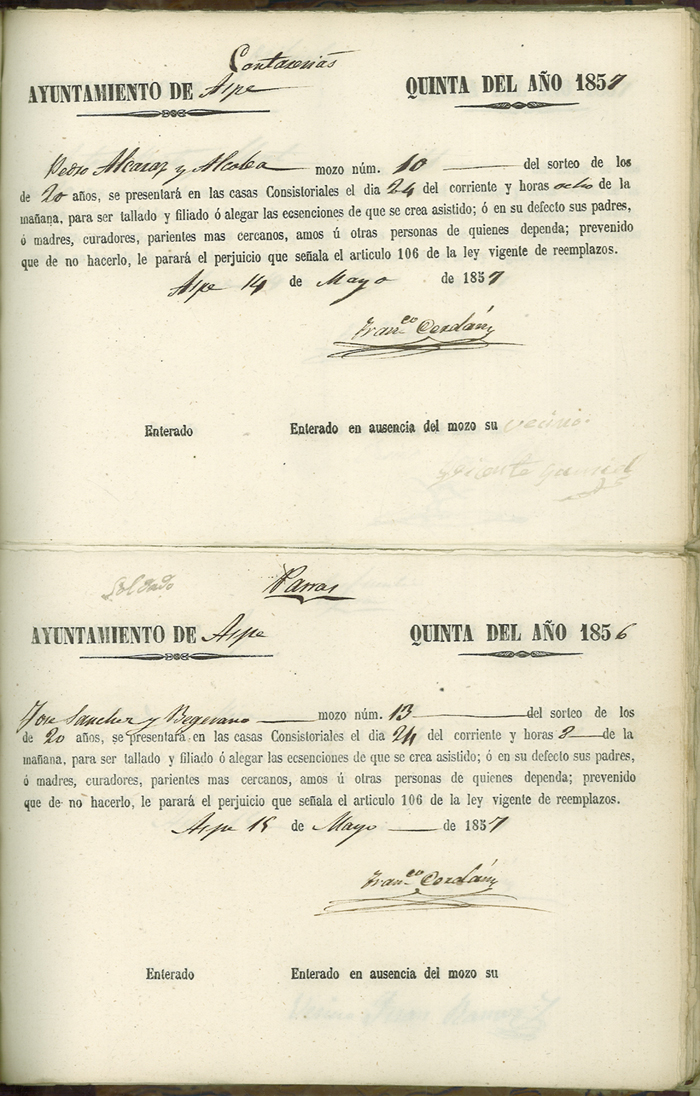 AYUNTAMIENTO DE Aspe QUINTA DEL AÑO 1857
Pedro Alcaraz y Alcolea mozo núm. 10 del sorteo de los
de 20 años, se presentará en las casas Consistoriales el dia 24 del corriente y horas ocho de la
mañana, para ser tallado y filiado ó alegar las ecsenciones de que se crea asistido; ó en su defecto sus padres,
ó madres, curadores, parientes mas cercanos, amos ú otras personas de quienes dependa; prevenido
que de no hacerlo, le parará el perjuicio que señala el articulo 106 de la ley vigente de reemplazos.
Aspe 14 de Mayo de 1857
Fran.co Cerdán
Enterado Enterado en ausencia del mozo su vecino
Vicente
Soldado Parras
AYUNTAMIENTO DE Aspe QUINTA DEL AÑO 1856
Jose Sanchez y mozo núm. 13 del sorteo de los
de 20 años, se presentará en las casas Consistoriales el dia 24 del corriente y horas 8 de la
mañana, para ser tallado y filiado ó alegar las ecsenciones de que se crea asistido; ó en su defecto sus padres,
ó madres, curadores, parientes mas cercanos, amos ú otras personas de quienes dependa; prevenido
que de no hacerlo, le parará el perjuicio que señala el articulo 106 de la ley vigente de reemplazos.
Aspe 15 de Mayo de 1857
Fran.co Cerdán
Enterado Enterado en ausencia del mozo su